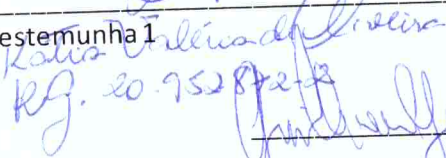 estemunha 1
Katia Valéria de Oliveira
RG. 20.952872-2